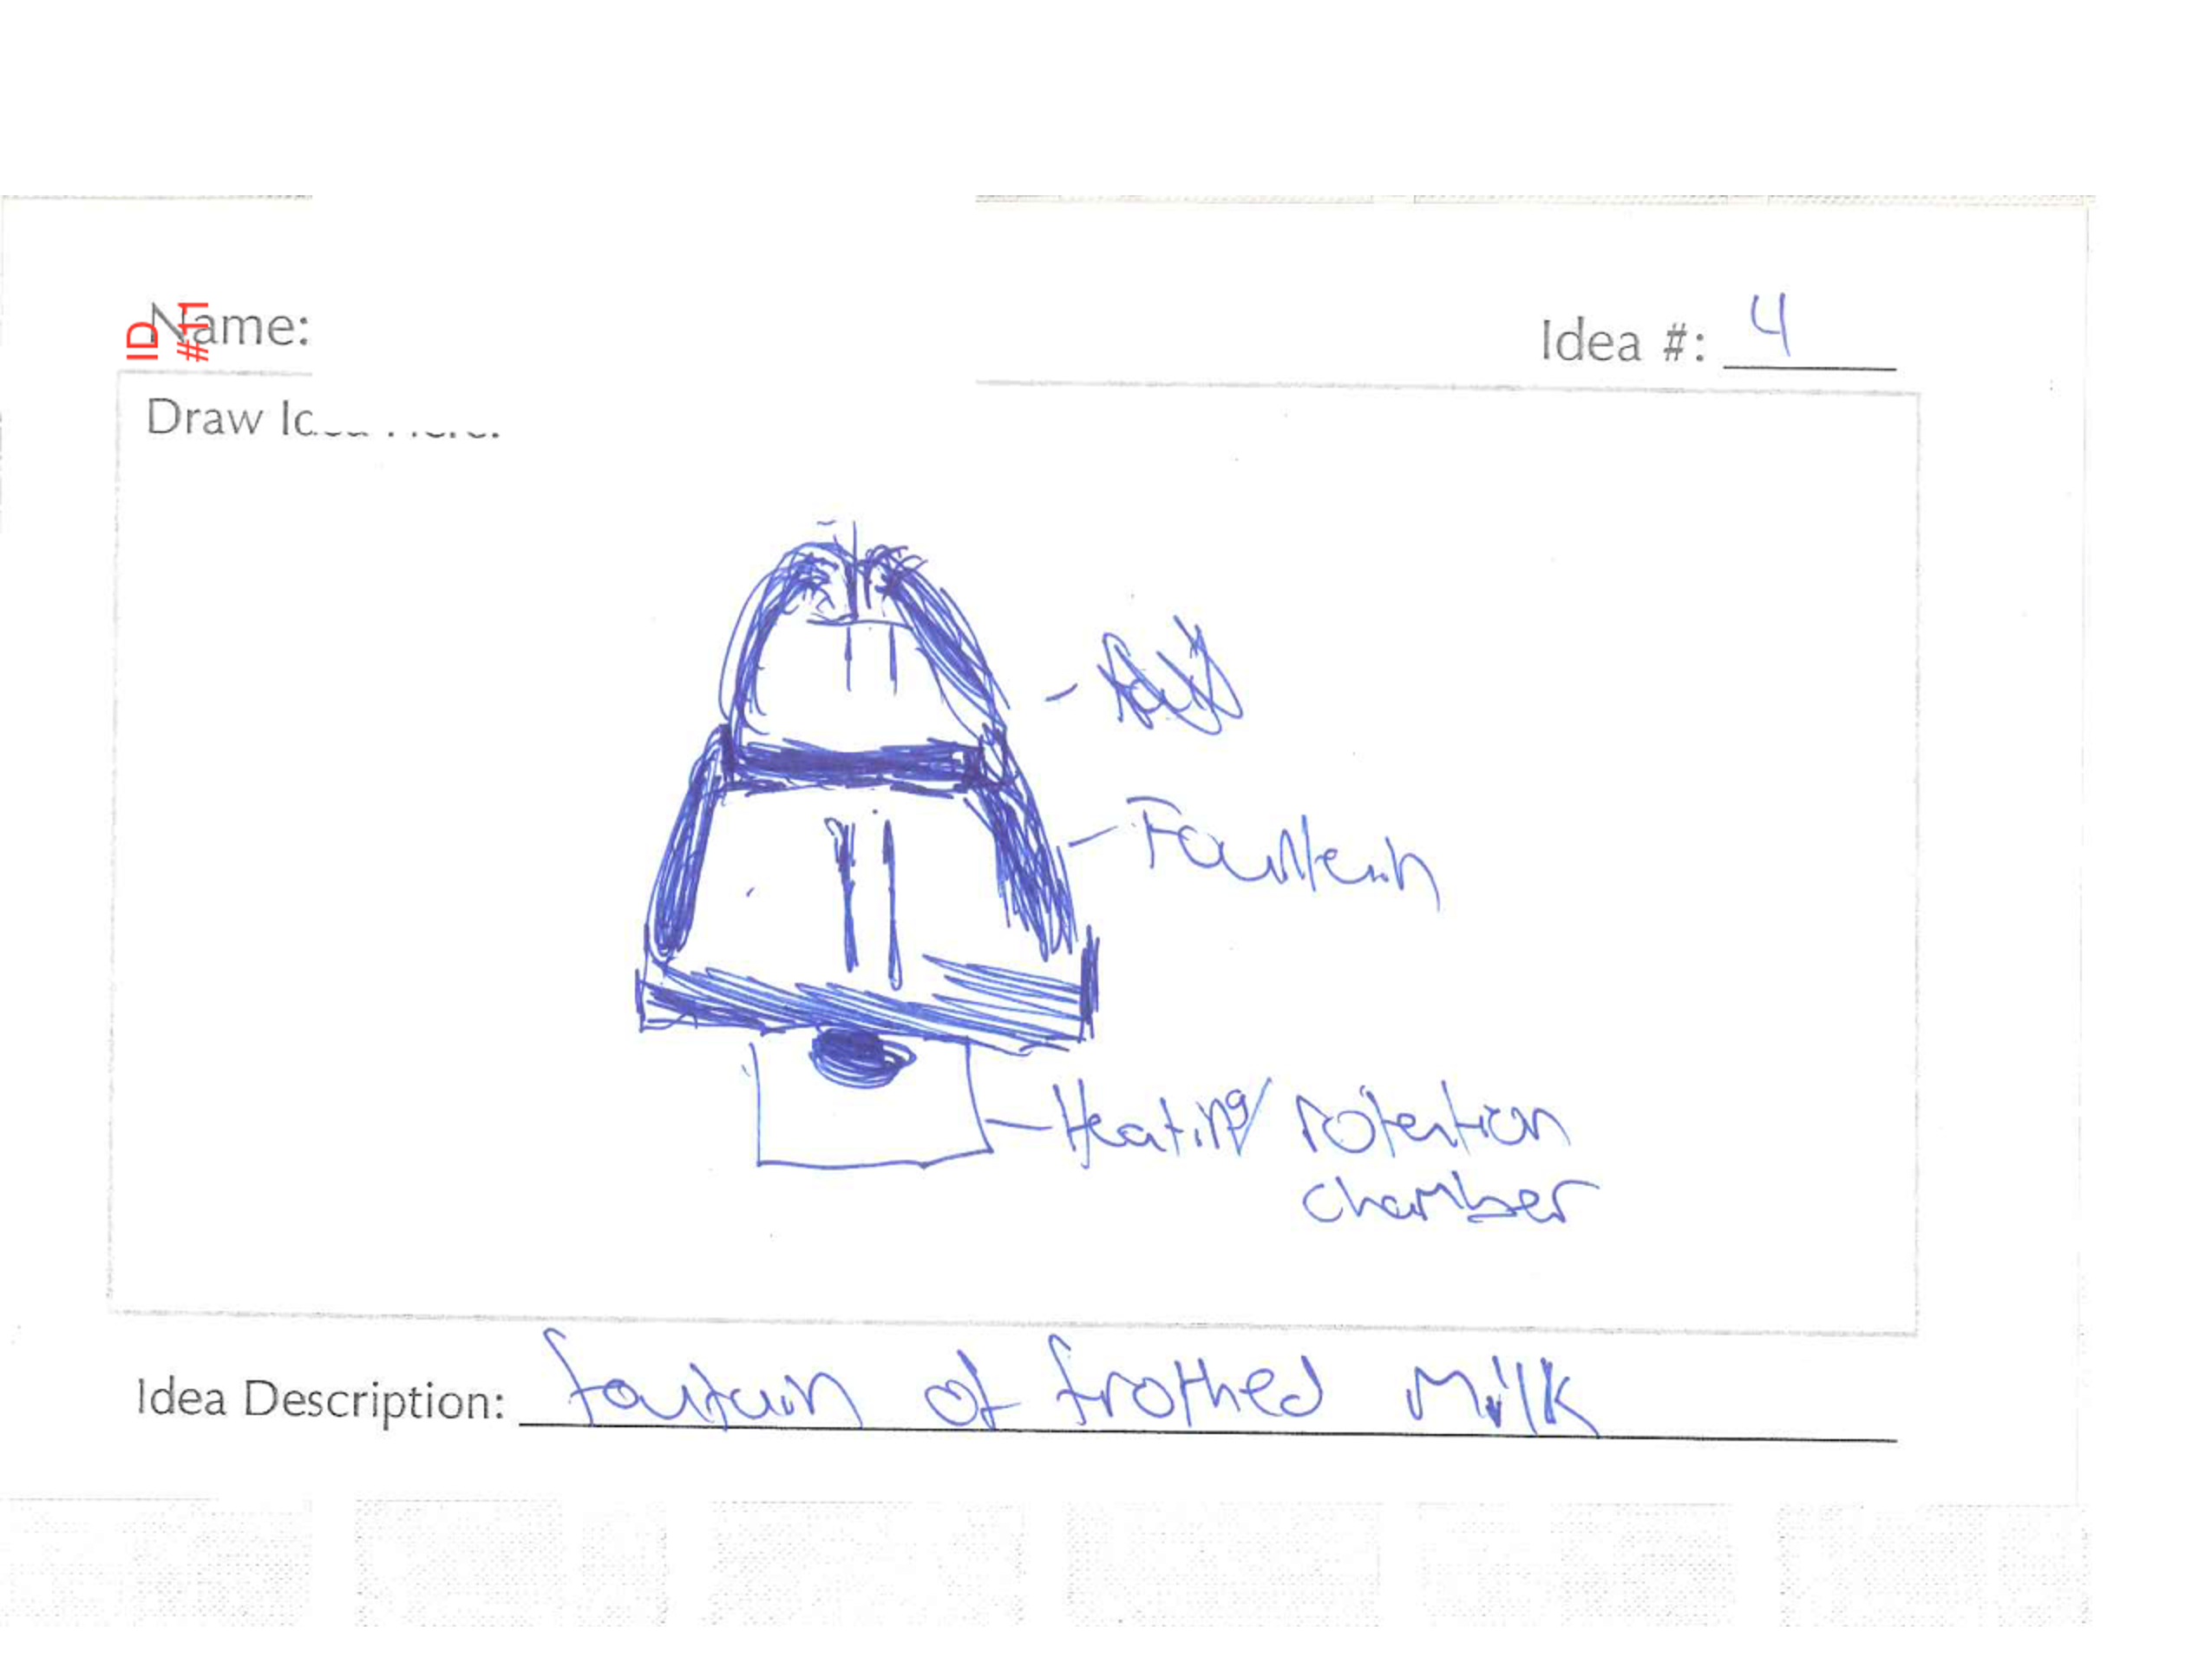 ID
#11
Name:
Idea #: 4
Draw
Fountain
Heating/ rotention
chamber
Idea Description: fountain of frothed Milk